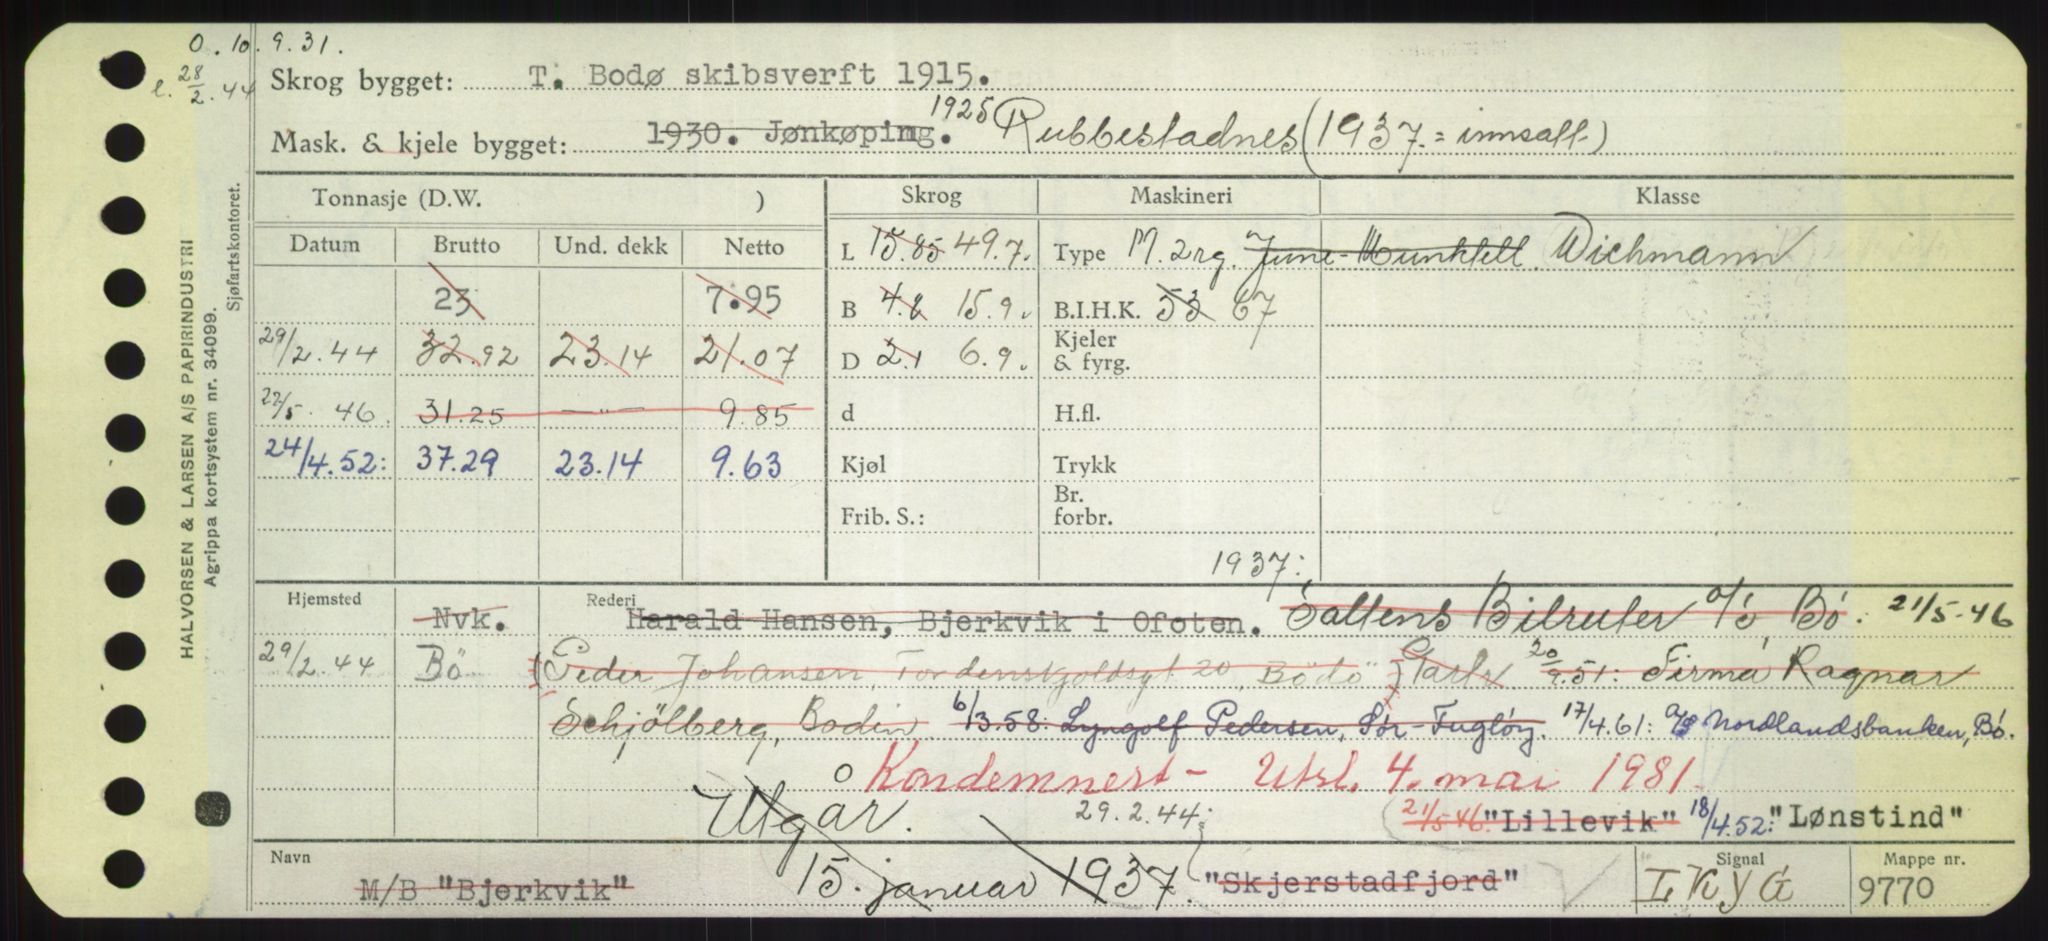 O. 10. 9. 31.
e. 28/2. 44
Skrog bygget: T. Bodø skibsverft 1915.
Mask. & kjele bygget: 1930. Jønkøping. 1925 Rubbestadnes (1937. = innsatt.)
Tonnasje (D.W. ) Skrog Maskineri Klasse
Datum Brutto Und. dekk Netto L 15.85 49.7. Type M. 2rg. June-Munktell. Wichmann
23 7.95 B 4.8 15.9. B.I.H.K. 53 67
29/2.44 32.92 23.14 21.07 D 2.1 6.9. Kjeler & fyrg.
22/5. 46. 31.25 —"— 9.85 d H.fl.
24/4.52: 37.29 23.14 9.63 Kjøl Trykk
Frib. S.: Br. forbr.
1937:
Hjemsted Nvk. Rederi Harald Hansen, Bjerkvik i Ofoten. Saltens Bilruter a/s Bö. 21/5-46
29/2.44 Bö (Peder Johansen, Tordenskjoldsgt 20, Bödö) 20/9.51: Firma Ragnar
Schjölberg, Bodin 6/3.58: Lyngolf Pedersen, Sør-Fugløy. 17/4.61: A/S Nordlandsbanken, Bö.
O Kondemnert - Utsl. 4. mai 1981.
Utgår. 29.2.44: 21/5 46. "Lillevik" 18/4.52: "Lønstind"
Navn M/B "Bjerkvik" 15. januar 1937. "Skjerstadfjord" Signal LKYG Mappe nr. 9770
HALVORSEN & LARSEN A/S PAPIRINDUSTRI
Agrippa kortsystem nr. 34099.
Sjøfartskontoret.